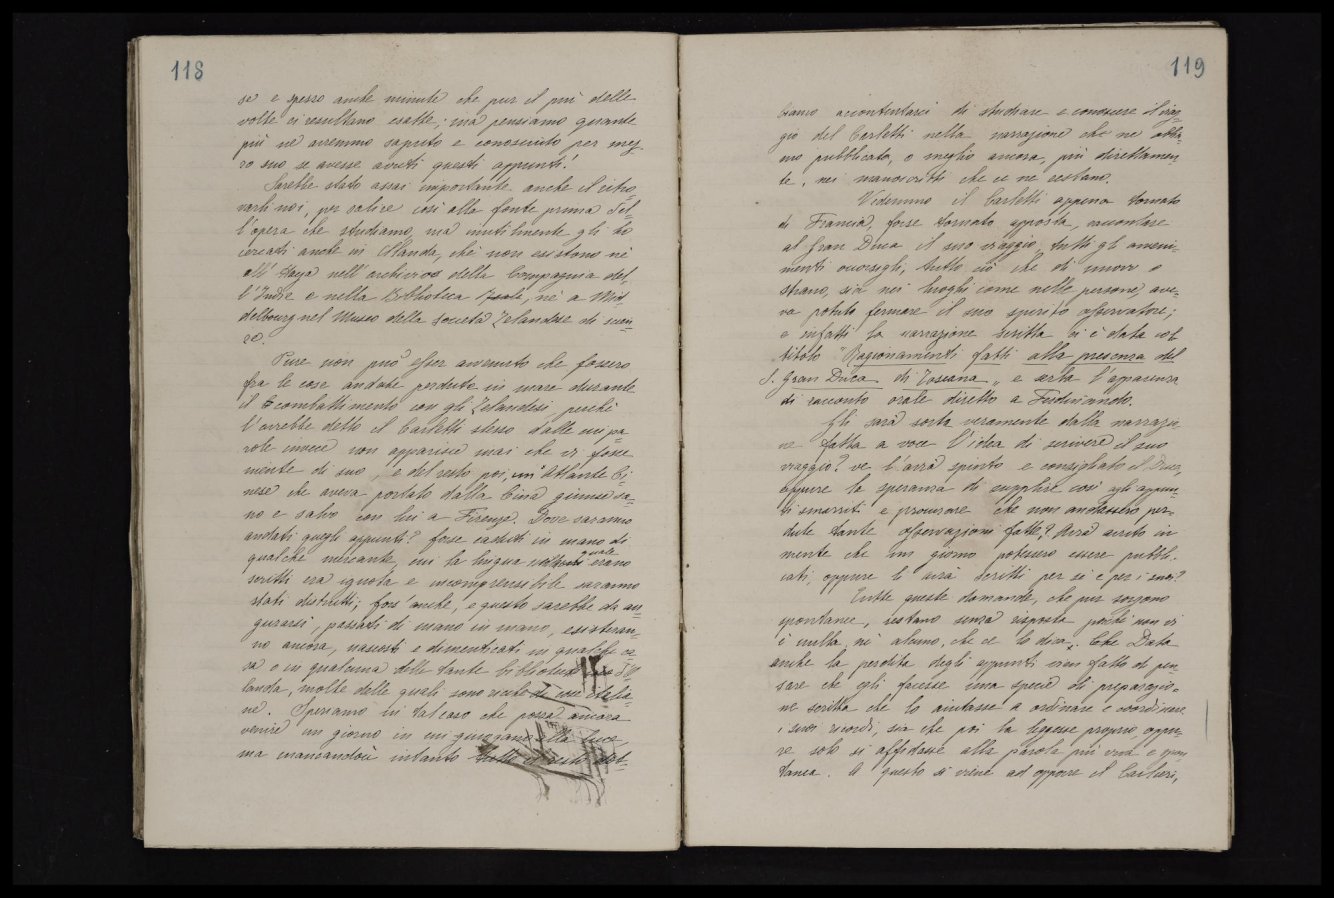 118
se e spesso anche minute che pur il più delle
volte ci resultano esatte; ma pensiamo quante
più ne avremmo saputo e conosciuto per mez
zo suo se avesse avuti questi appunti!
Sarebbe stato assai importante anche il ritro
varli noi, per salire così alla fonte prima del
l'opera che studiamo, ma inutilmente gli ho
cercati anche in Olanda, ché non esistono né
all'Haya nell'archivio della Compagnia del
l'Indie e nella Biblioteca Reale, né a Mid
delbourg nel Museo della società Zelandese di scien
ze.
Pure non può esser avvenuto che fossero
fra le cose andate perdute in mare durante
il combattimento con gli Zelandesi perché
l'avrebbe detto il Carletti stesso dalle cui pa
role invece non apparisce mai che vi fosse
mente di suo, e del resto poi, un Atlante Ci
nese che aveva portato dalla Cina giunse sa
no e salvo con lui a Firenze. Dove saranno
andati quegli appunti? forse caduti in mano di
qualche mercante, cui la lingua nella quale erano
scritti era ignota e incomprensibile saranno
stati distrutti; fors'anche, e questo sarebbe da au
gurarsi, passati di mano in mano, esisteran
no ancora, nascosti e dimenticati in qualche ca
sa o in qualcuna delle tante biblioteche d'O
landa, molte delle quali sono ricche di cose italia
ne. Speriamo in tal caso che possa ancora
venire un giorno in cui giungano alla luce
ma mancandoci intanto tutto questo dob-
119
biamo accontentarci di studiare e conoscere il viag
gio del Carletti nella narrazione che ne abbia
mo pubblicata, o meglio ancora, più direttamen
te, nei manoscritti che ce ne restano.
Vedemmo il Carletti appena tornato
di Francia, forse tornato apposta, raccontare
al Gran Duca il suo viaggio, tutti gli avveni
menti occorsigli, tutto ciò che di nuovo e
strano, sia nei luoghi come nelle persone, ave
va potuto fermare il suo spirito osservatore;
e infatti la narrazione scritta ci è data col
titolo "Ragionamenti fatti alla presenza del
S. Gran Duca di Toscana" e serba l'apparenza
di racconto orale diretto a Ferdinando.
Gli sarà sorta veramente dalla narrazio
ne fatta a voce l'idea di scrivere il suo
viaggio? ve l'avrà spinto e consigliato il Duca,
oppure la speranza di supplire così agli appun
ti smarriti e procurare che non andassero per
dute tante osservazioni fatte? Avrà avuto in
mente che un giorno potessero essere pubbli
cati, oppure li avrà scritti per sé e per i suoi?
Tutte queste domande, che pur sorgono
spontanee, restano senza risposta poiché non vi
è nulla, né alcuno, che ce lo dica. Data
anche la perdita degli appunti vien fatto di pen
sare che egli facesse una specie di preparazio
ne scritta che lo aiutasse a ordinare e coordinare
i suoi ricordi, sia che poi la leggesse proprio oppu
re solo si affidasse alla parola più viva e spon
tanea. A questo si viene ad opporre il Carlieri,